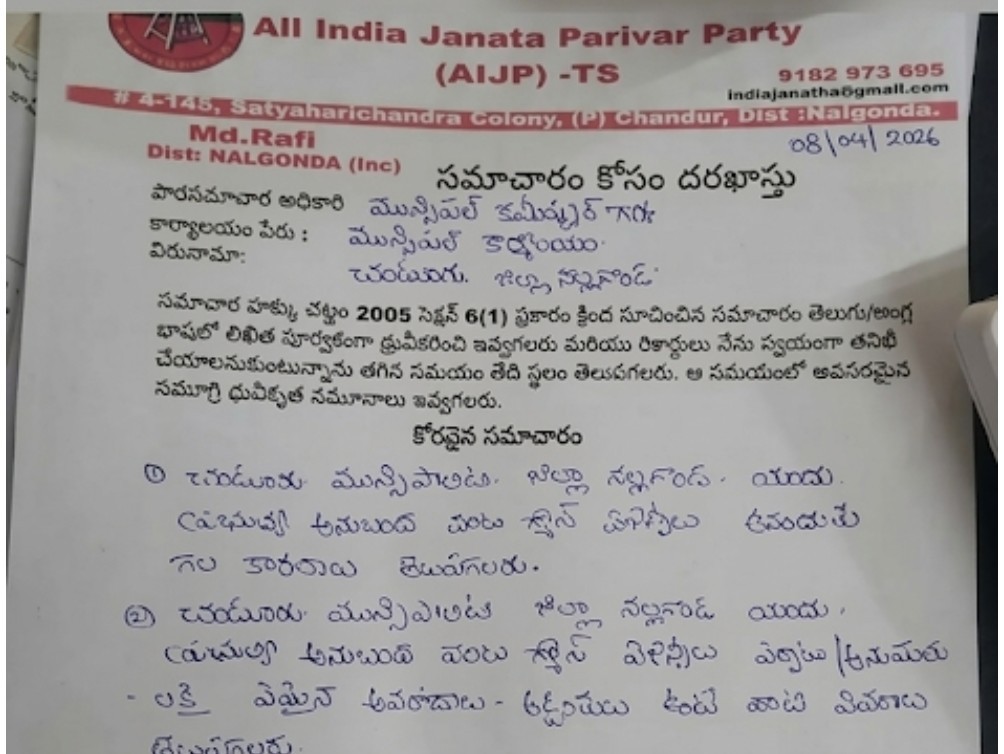 All India Janata Parivar Party
(AIJP) -TS
9182 973 695
indiajanatha@gmail.com
# 4-145, Satyaharichandra Colony, (P) Chandur, Dist :Nalgonda.
Md.Rafi
08/04/2026
Dist: NALGONDA (Inc)
సమాచారం కోసం దరఖాస్తు
పౌరసమాచార అధికారి మున్సిపల్ కమీష్నర్ గారు
కార్యాలయం పేరు : మున్సిపల్ కార్యాలయం.
చిరునామా:
చండూరు. జిల్లా నల్లగొండ
సమాచార హక్కు చట్టం 2005 సెక్షన్ 6(1) ప్రకారం క్రింద సూచించిన సమాచారం తెలుగు/ఆంగ్ల
భాషలో లిఖిత పూర్వకంగా ధ్రువీకరించి ఇవ్వగలరు మరియు రికార్డులు నేను స్వయంగా తనిఖీ
చేయాలనుకుంటున్నాను తగిన సమయం తేది స్థలం తెలుపగలరు. ఆ సమయంలో అవసరమైన
సమాగ్రి ధువీకృత నమూనాలు ఇవ్వగలరు.
కోరవైన సమాచారం
① చండూరు మున్సిపాలిటి. జిల్లా నల్లగొండ. యందు.
అనుబంద
గల కారణాలు తెలుపగలరు.
② చండూరు మున్సిపాలిటి జిల్లా నల్లగొండ యందు.
అనుబంద ఏర్పాటు/అనుమతు
- లకై ఏమైన అవరోదాలు - అడ్డంకులు ఉంటే వాటి వివరాలు
తెలుపగలరు.